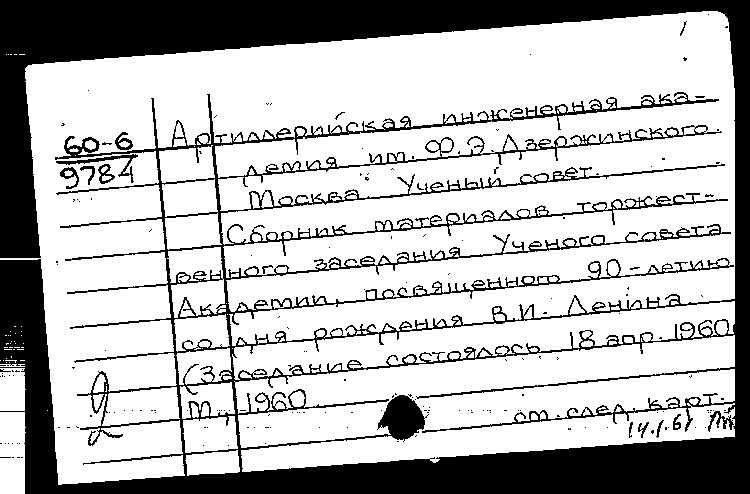 60-6
9784
Артиллерийская инженерная ака-
демия им. Ф.Э. Дзержинского.
Москва. Ученый совет.
Сборник материалов торжест-
венного заседания Ученого совета
Академии, посвященного 90-летию
со дня рождения В.И. Ленина.
(Заседание состоялось 18 апр. 1960
М., 1960.
см. след. карт.
14.1.61
2